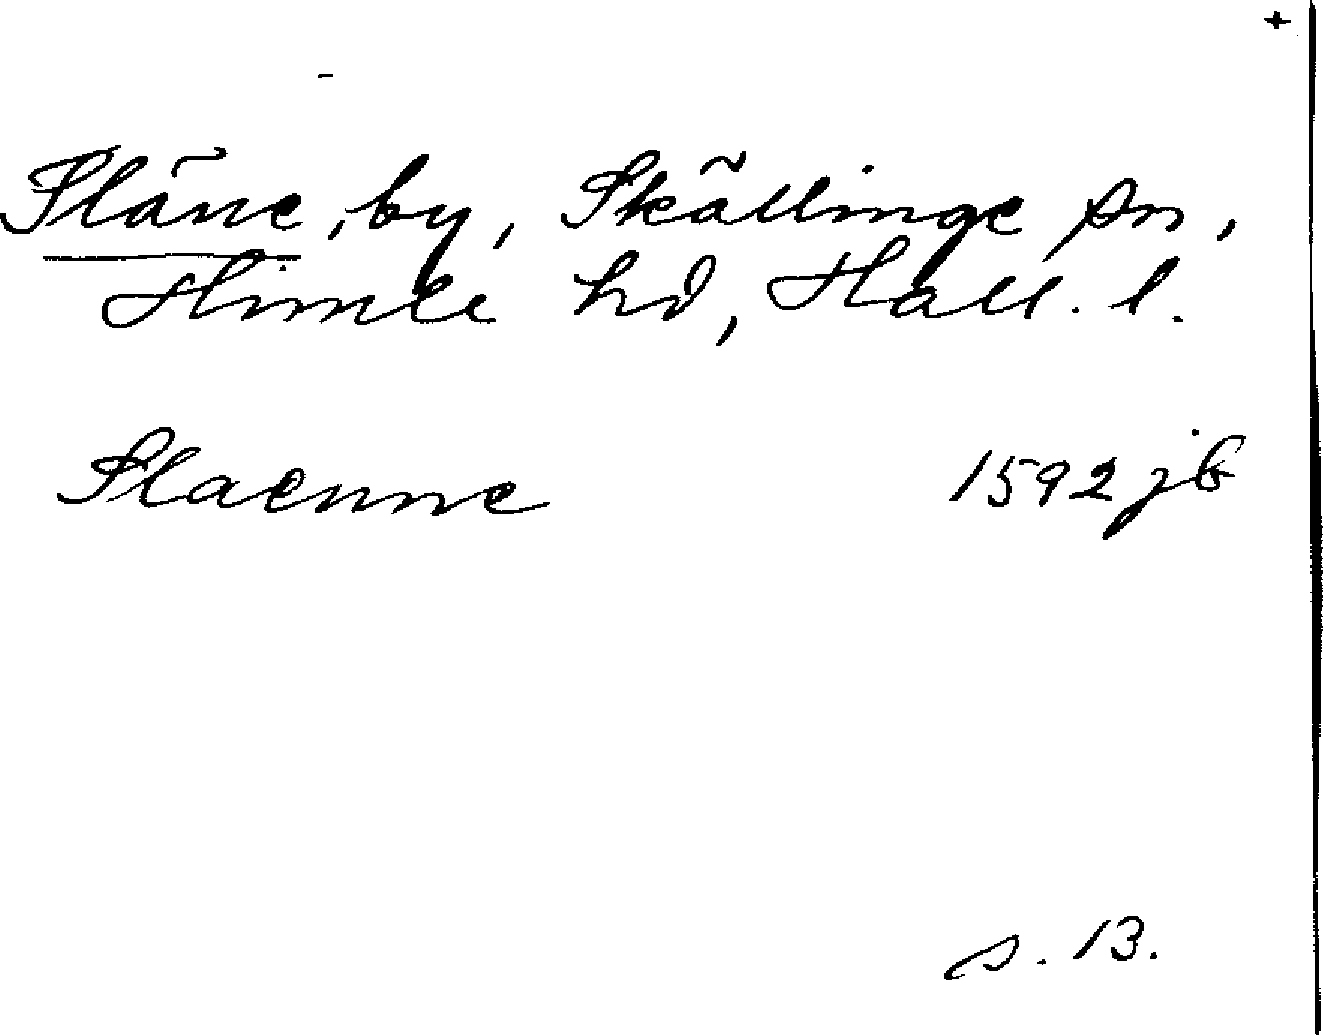 +
Släne, by, Skällinge sn,
Himle hd, Hall. l.
Slaenne 1592 jb
s. 13.